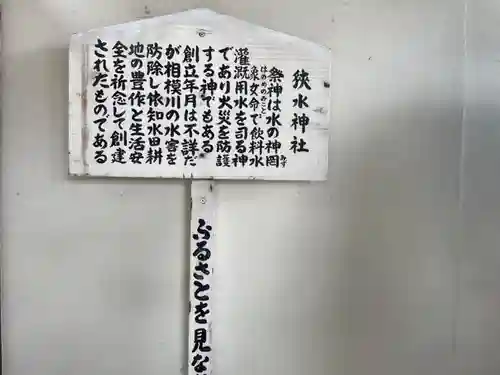 狹水神社
祭神は水の神罔
みず
象女命で飲料水
はめのみこと
灌漑用水を司る神
であり火災を防護
する神でもある
創立年月は不詳だ
が相模川の水害を
防除し依知水田耕
地の豊作と生活安
全を祈念して創建
されたものである
ふるさとを見な